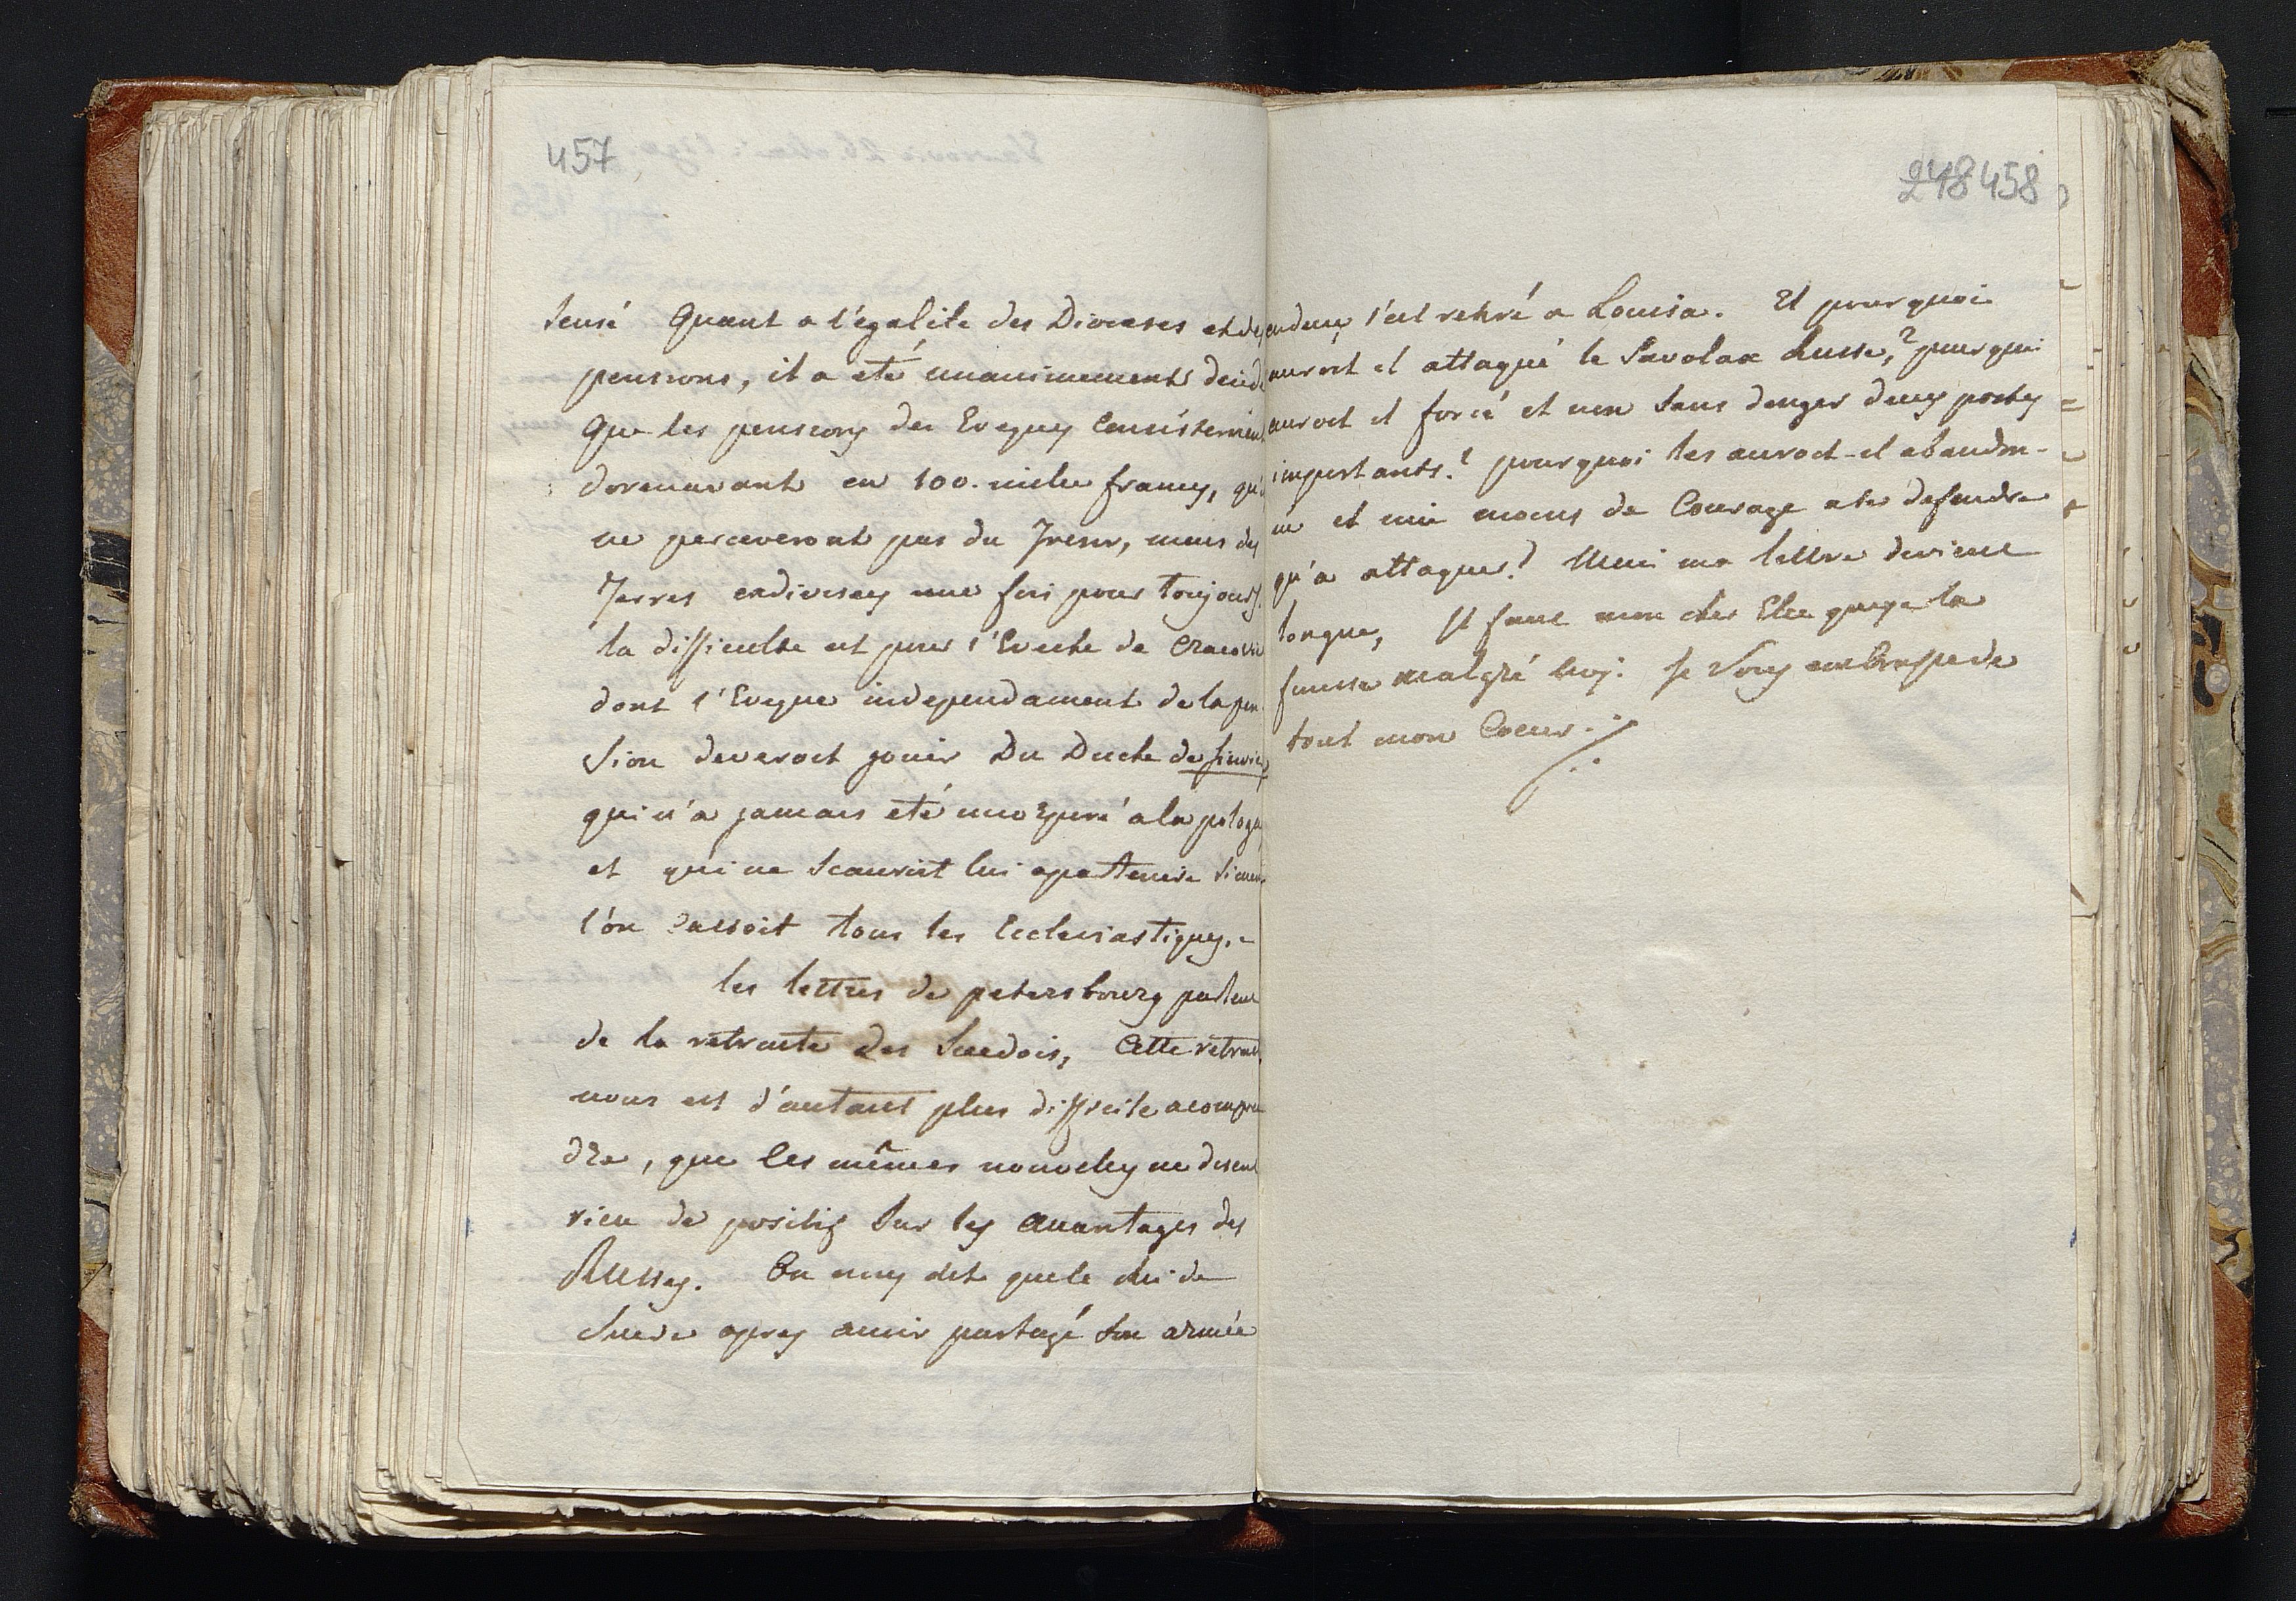 457
sensé Quant a l'égalite des Dioceses et des
pensions, il a eté unanimement decidé
que les pensions des Eveques consisteroient
dorenavant en 100. mille francs, qu'ils
ne perceveront pas du Tresor, mais des
Terres une fois pour toujours.
la difficulte est pour l'Eveche de Cracovie
dont l'Eveque independament de la pen-
sion deveroit jouir Du Duche de
qui n'a jamais eté incorporé a la pologne
et qui ne scauroit lui apartenir
l'on cassoit tous les Ecclesiastiques.
les lettres de petersbourg parlent
de la retraite des Suedois, Cette retraite
nous est d'autant plus difficile a compren
dre, que les mêmes nouvelles ne disent
rien de positif sur les avantages des
Russes. On nous dit que le Roi de
Suede apres avoir partagé son armée
248 458
en deux s'est retiré a Louisa. Et pourquoi
auroit il attaqué le Savolax Russe,? pourquoi
auroit il forcé et non sans danger deux postes
importants? pourquoi les auroit-il abandon-
né et mis moins de Courage a les defendre
qu'a attaquer? Mais ma lettre devient
longue, Il faut mon cher que je la
finisse malgré moi. Je Vous embrasse de
tout mon Coeur ./.